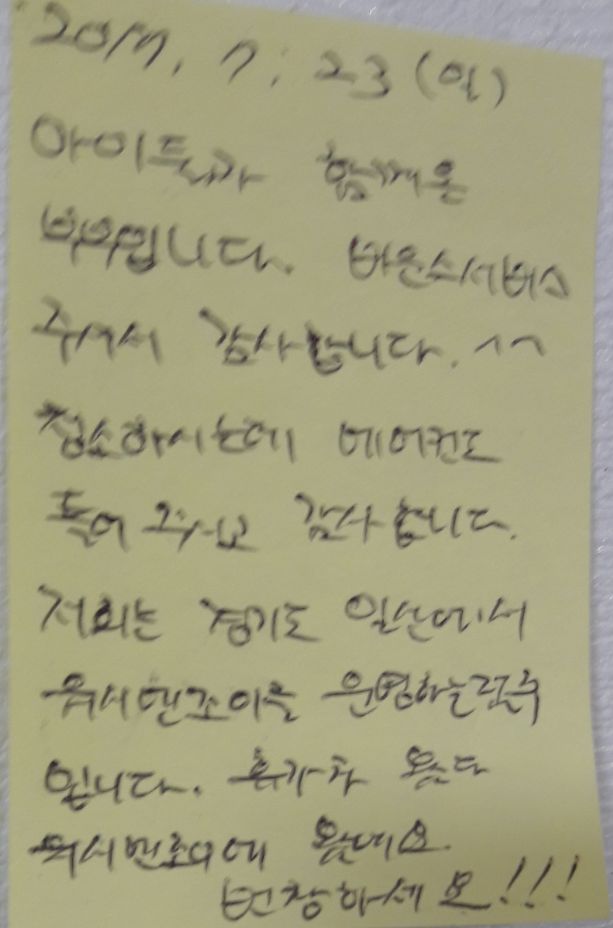 2017. 7. 23 (일)
아이들과 함께온
부부입니다. 바운스서비스
주셔서 감사합니다. ^^
청소하시는데 에어컨도
틀어 주시고 감사합니다.
저희는 경기도 일산에서
워시엔조이를 운영하는 점주
입니다. 휴가차 왔다
워시엔조이에 왔네요.
번창하세요!!!